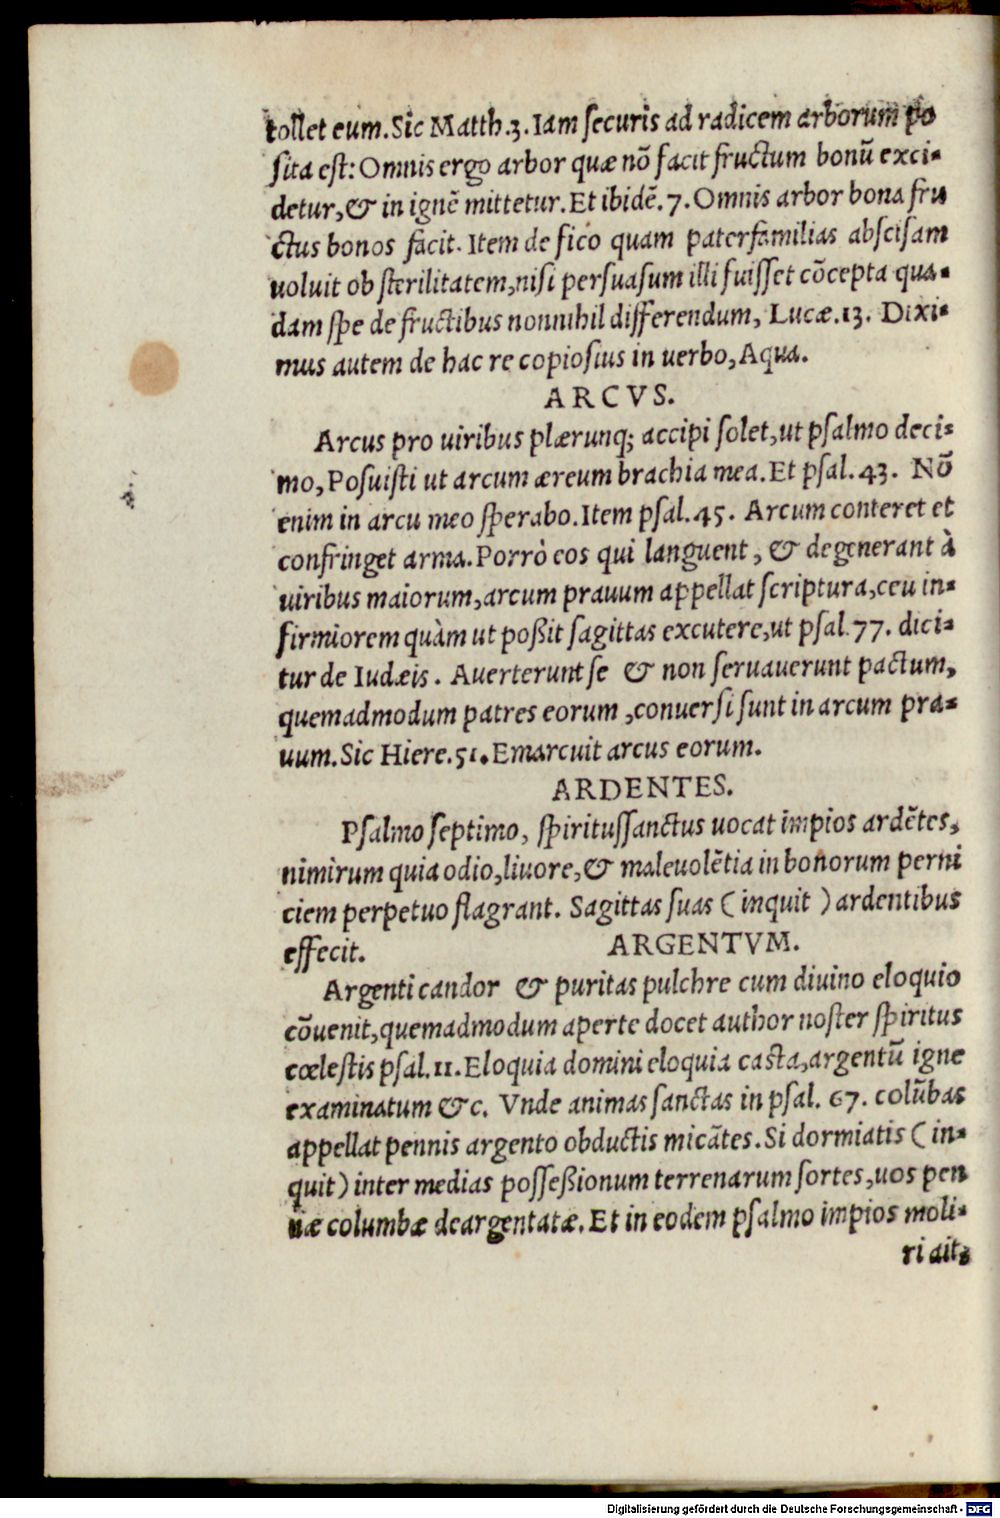 tollet eum. Sic Matth.3. Iam securis ad radicem arborum po
sita est: Omnis ergo arbor quæ nō facit fructum bonū exci-
detur, & in ignē mittetur. Et ibidē.7. Omnis arbor bona fru
ctus bonos facit. Item de fico quam paterfamilias abscisam
uoluit ob sterilitatem, nisi persuasum illi fuisset cōcepta qua-
dam spe de fructibus nonnihil differendum, Lucæ.13. Dixi-
mus autem de hac re copiosius in uerbo, Aqua.
ARCVS.
Arcus pro uiribus plærunq; accipi solet, ut psalmo deci-
mo, Posuisti ut arcum æreum brachia mea. Et psal.43. Nō
enim in arcu meo sperabo. Item psal.45. Arcum conteret et
confringet arma. Porrò eos qui languent, & degenerant à
uiribus maiorum, arcum prauum appellat scriptura, ceu in-
firmiorem quàm ut poßit sagittas excutere, ut psal.77. dici-
tur de Iudæis. Auerterunt se & non seruauerunt pactum,
quemadmodum patres eorum, conuersi sunt in arcum pra-
uum. Sic Hiere.51. Emarcuit arcus eorum.
ARDENTES.
Psalmo septimo, spiritussanctus uocat impios ardētes,
nimirum quia odio, liuore, & maleuolētia in bonorum perni
ciem perpetuo flagrant. Sagittas suas (inquit) ardentibus
effecit. ARGENTVM.
Argenti candor & puritas pulchre cum diuino eloquio
cōuenit, quemadmodum aperte docet author noster spiritus
cœlestis psal.11. Eloquia domini eloquia casta, argentū igne
examinatum &c. Vnde animas sanctas in psal. 67. colūbas
appellat pennis argento obductis micātes. Si dormiatis (in-
quit) inter medias posseßionum terrenarum sortes, uos pen
næ columbæ deargentatæ. Et in eodem psalmo impios moli-
ri ait,
Digitalisierung gefördert durch die Deutsche Forschungsgemeinschaft - DFG